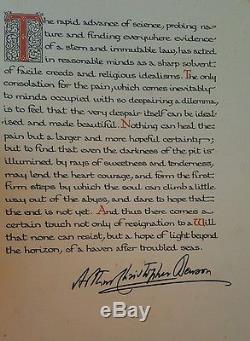 The rapid advance of science, probing na-
ture and finding everywhere evidence
of a stern and immutable law, has acted
in reasonable minds as a sharp solvent
of facile creeds and religious idealisms. The only
consolation for the pain, which comes inevitably
to minds occupied with so despairing a dilemma,
is to feel that the very despair itself can be ideal-
ised and made beautiful. Nothing can heal the
pain but a larger and more hopeful certainty-
but to find that even the darkness of the pit is
illumined by rays of sweetness and tenderness,
may lend the heart courage, and form the first
firm steps by which the soul can climb a little
way out of the abyss, and dare to hope that
the end is not yet. And thus there comes a
certain touch not only of resignation to a Will
that none can resist, but a hope of light beyond
the horizon, of a haven after troubled seas.
Arthur Christopher Benson